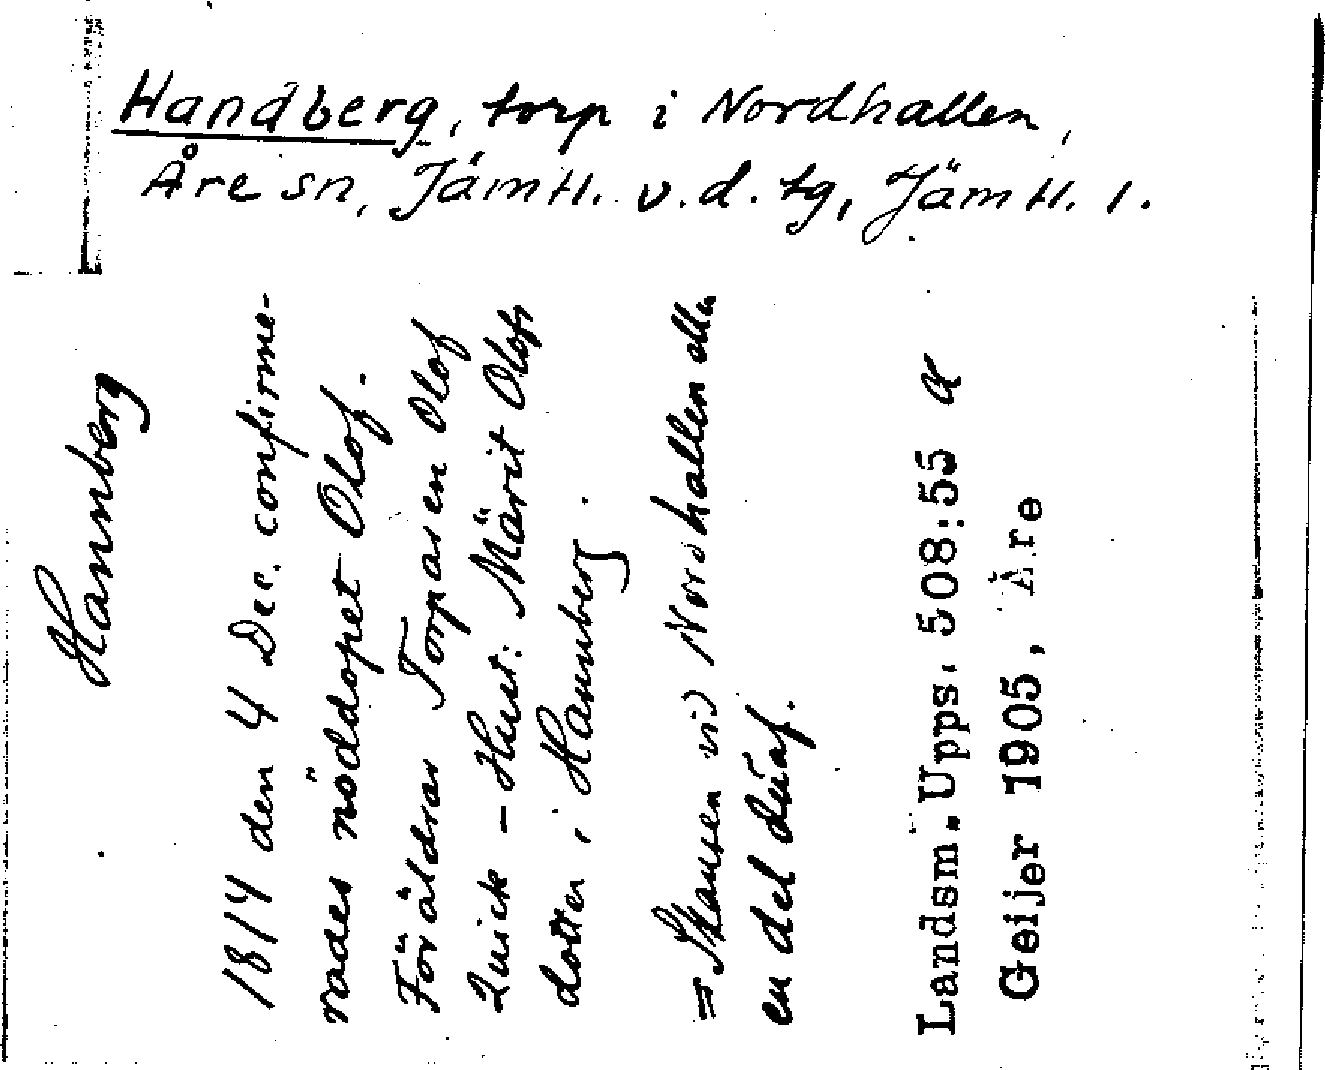 Handberg, torp i Nordhallen,
Åre sn, Jämtl. v.d. tg, Jämtl. l.
Hannberg
1814 den 4 Dec. confirme-
rades nöddopet Olof.
Föräldrar Torparen Olof
Quick – Hust: Märit Olofs
dotter i Hannberg.
= Stausen vid Nordhallen eller
en del däraf.
Landsm. Upps. 508:55 a
Geijer 1905, Åre